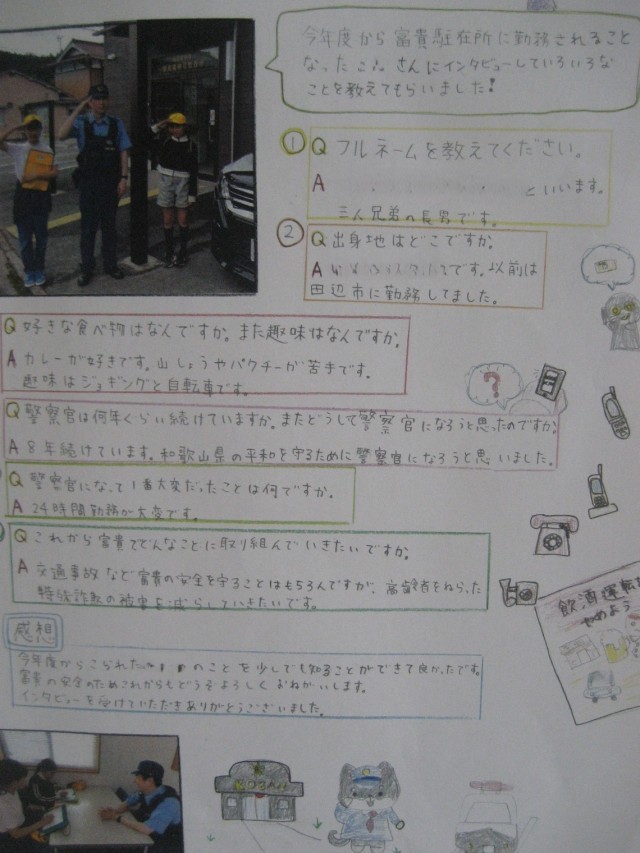 今年度から富貴駐在所に勤務されること
なった さんにインタビューしていろいろな
ことを教えてもらいました!
① Q フルネームを教えてください。
A といいます。
三人兄弟の長男です。
② Q 出身地はどこですか。
A です。以前は
田辺市に勤務してました。
Q 好きな食べ物はなんですか。また趣味はなんですか。
A カレーが好きです。山しょうやパクチーが苦手です。
趣味はジョギングと自転車です。
Q 警察官は何年くらい続けていますか。またどうして警察官になろうと思ったのですか。
A 8年続けています。和歌山県の平和を守るために警察官になろうと思いました。
Q 警察官になって1番大変だったことは何ですか。
A 24時間勤務が大変です。
Q これから富貴でどんなことに取り組んでいきたいですか。
A 交通事故など富貴の安全を守ることはもちろんですが、高齢者をねらった
特殊詐欺の被害を減らしていきたいです。
感想
今年度からこられた のことを少しでも知ることができて良かったです。
富貴の安全のためこれからもどうぞよろしくおねがいします。
インタビューを受けていただきありがとうございました。
?
飲酒運転
やめよう